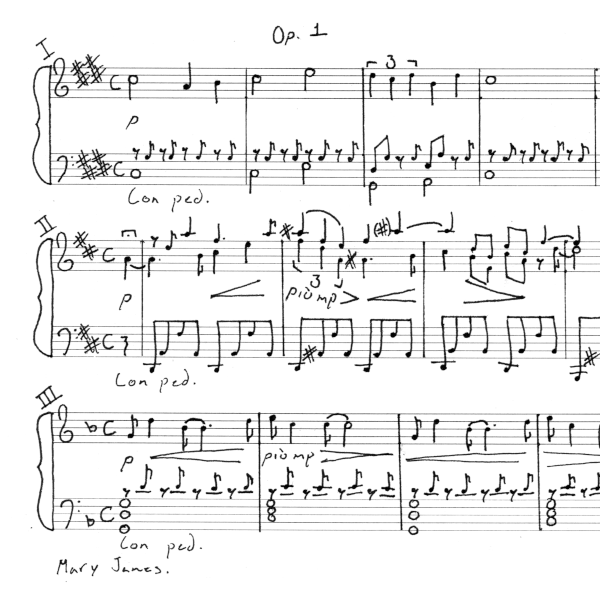 Op. 1
I
3
p
Con ped.
II
(#)
3
p più mp
Con ped.
III
p più mp
Con ped.
Mary James.